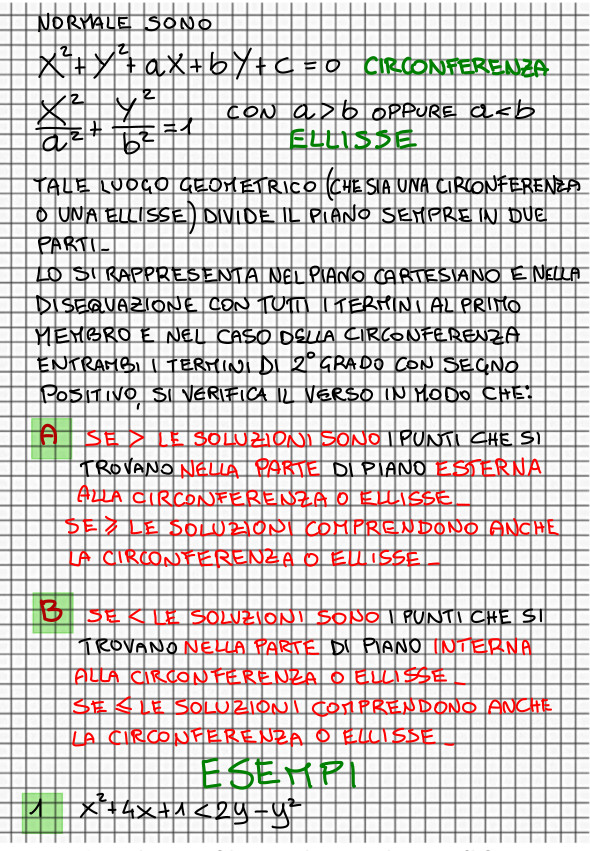 NORMALE SONO
x²+y²+ax+by+c=0 CIRCONFERENZA
x²/a² + y²/b² =1 CON a>b OPPURE a<b
ELLISSE
TALE LUOGO GEOMETRICO (CHE SIA UNA CIRCONFERENZA
O UNA ELLISSE) DIVIDE IL PIANO SEMPRE IN DUE
PARTI_
LO SI RAPPRESENTA NEL PIANO CARTESIANO E NELLA
DISEQUAZIONE CON TUTTI I TERMINI AL PRIMO
MEMBRO E NEL CASO DELLA CIRCONFERENZA
ENTRAMBI I TERMINI DI 2° GRADO CON SEGNO
POSITIVO, SI VERIFICA IL VERSO IN MODO CHE:
A SE > LE SOLUZIONI SONO I PUNTI CHE SI
TROVANO NELLA PARTE DI PIANO ESTERNA
ALLA CIRCONFERENZA O ELLISSE_
SE ⩾ LE SOLUZIONI COMPRENDONO ANCHE
LA CIRCONFERENZA O ELLISSE_
B SE < LE SOLUZIONI SONO I PUNTI CHE SI
TROVANO NELLA PARTE DI PIANO INTERNA
ALLA CIRCONFERENZA O ELLISSE_
SE ⩽ LE SOLUZIONI COMPRENDONO ANCHE
LA CIRCONFERENZA O ELLISSE_
ESEMPI
1 x²+4x+1<2y-y²